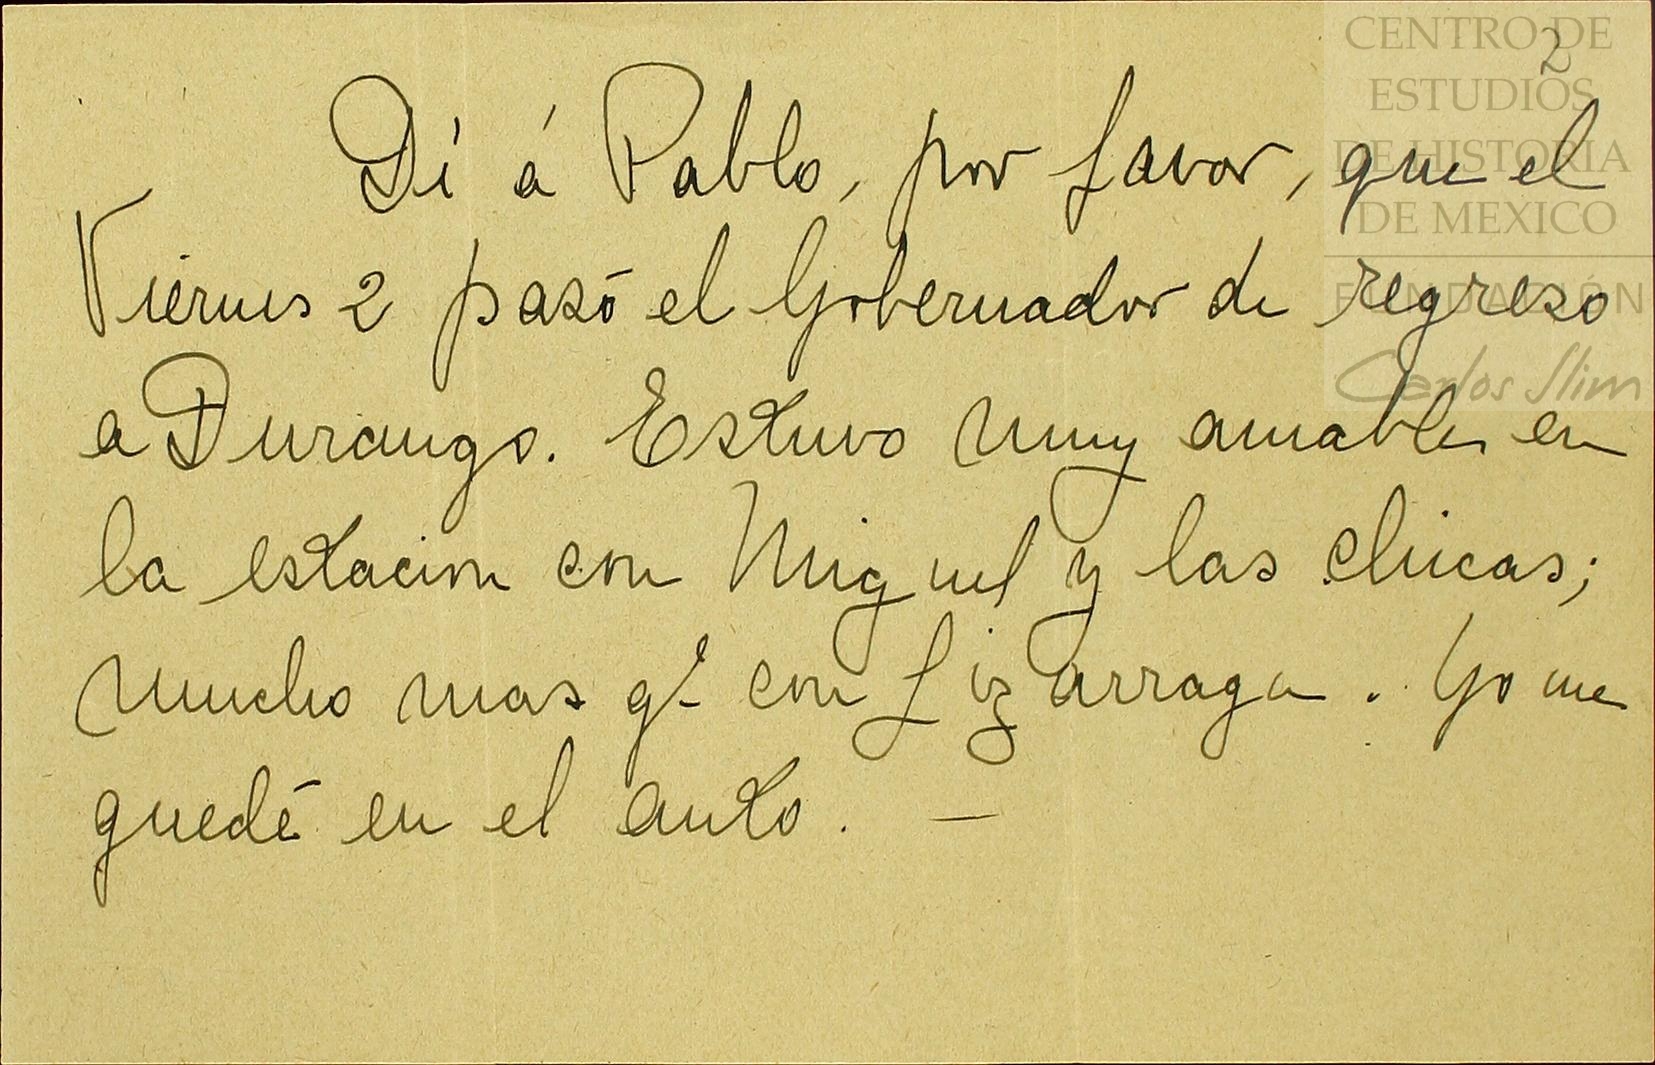 CENTRO DE
ESTUDIOS
DE HISTORIA
DE MEXICO
FUNDACIÓN
Carlos Slim
2
Dí á Pablo, por favor, que el
Viernes 2 pasó el Gobernador de regreso
a Durango. Estuvo muy amable en
la estacion con Miguel y las chicas;
mucho mas qe con Lizarraga. Yo me
quedé en el auto. —